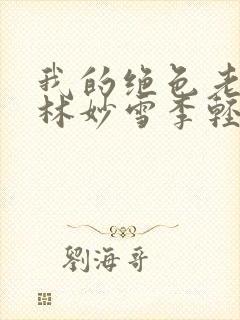 我的绝色老
林妙雪季轻
劉海哥